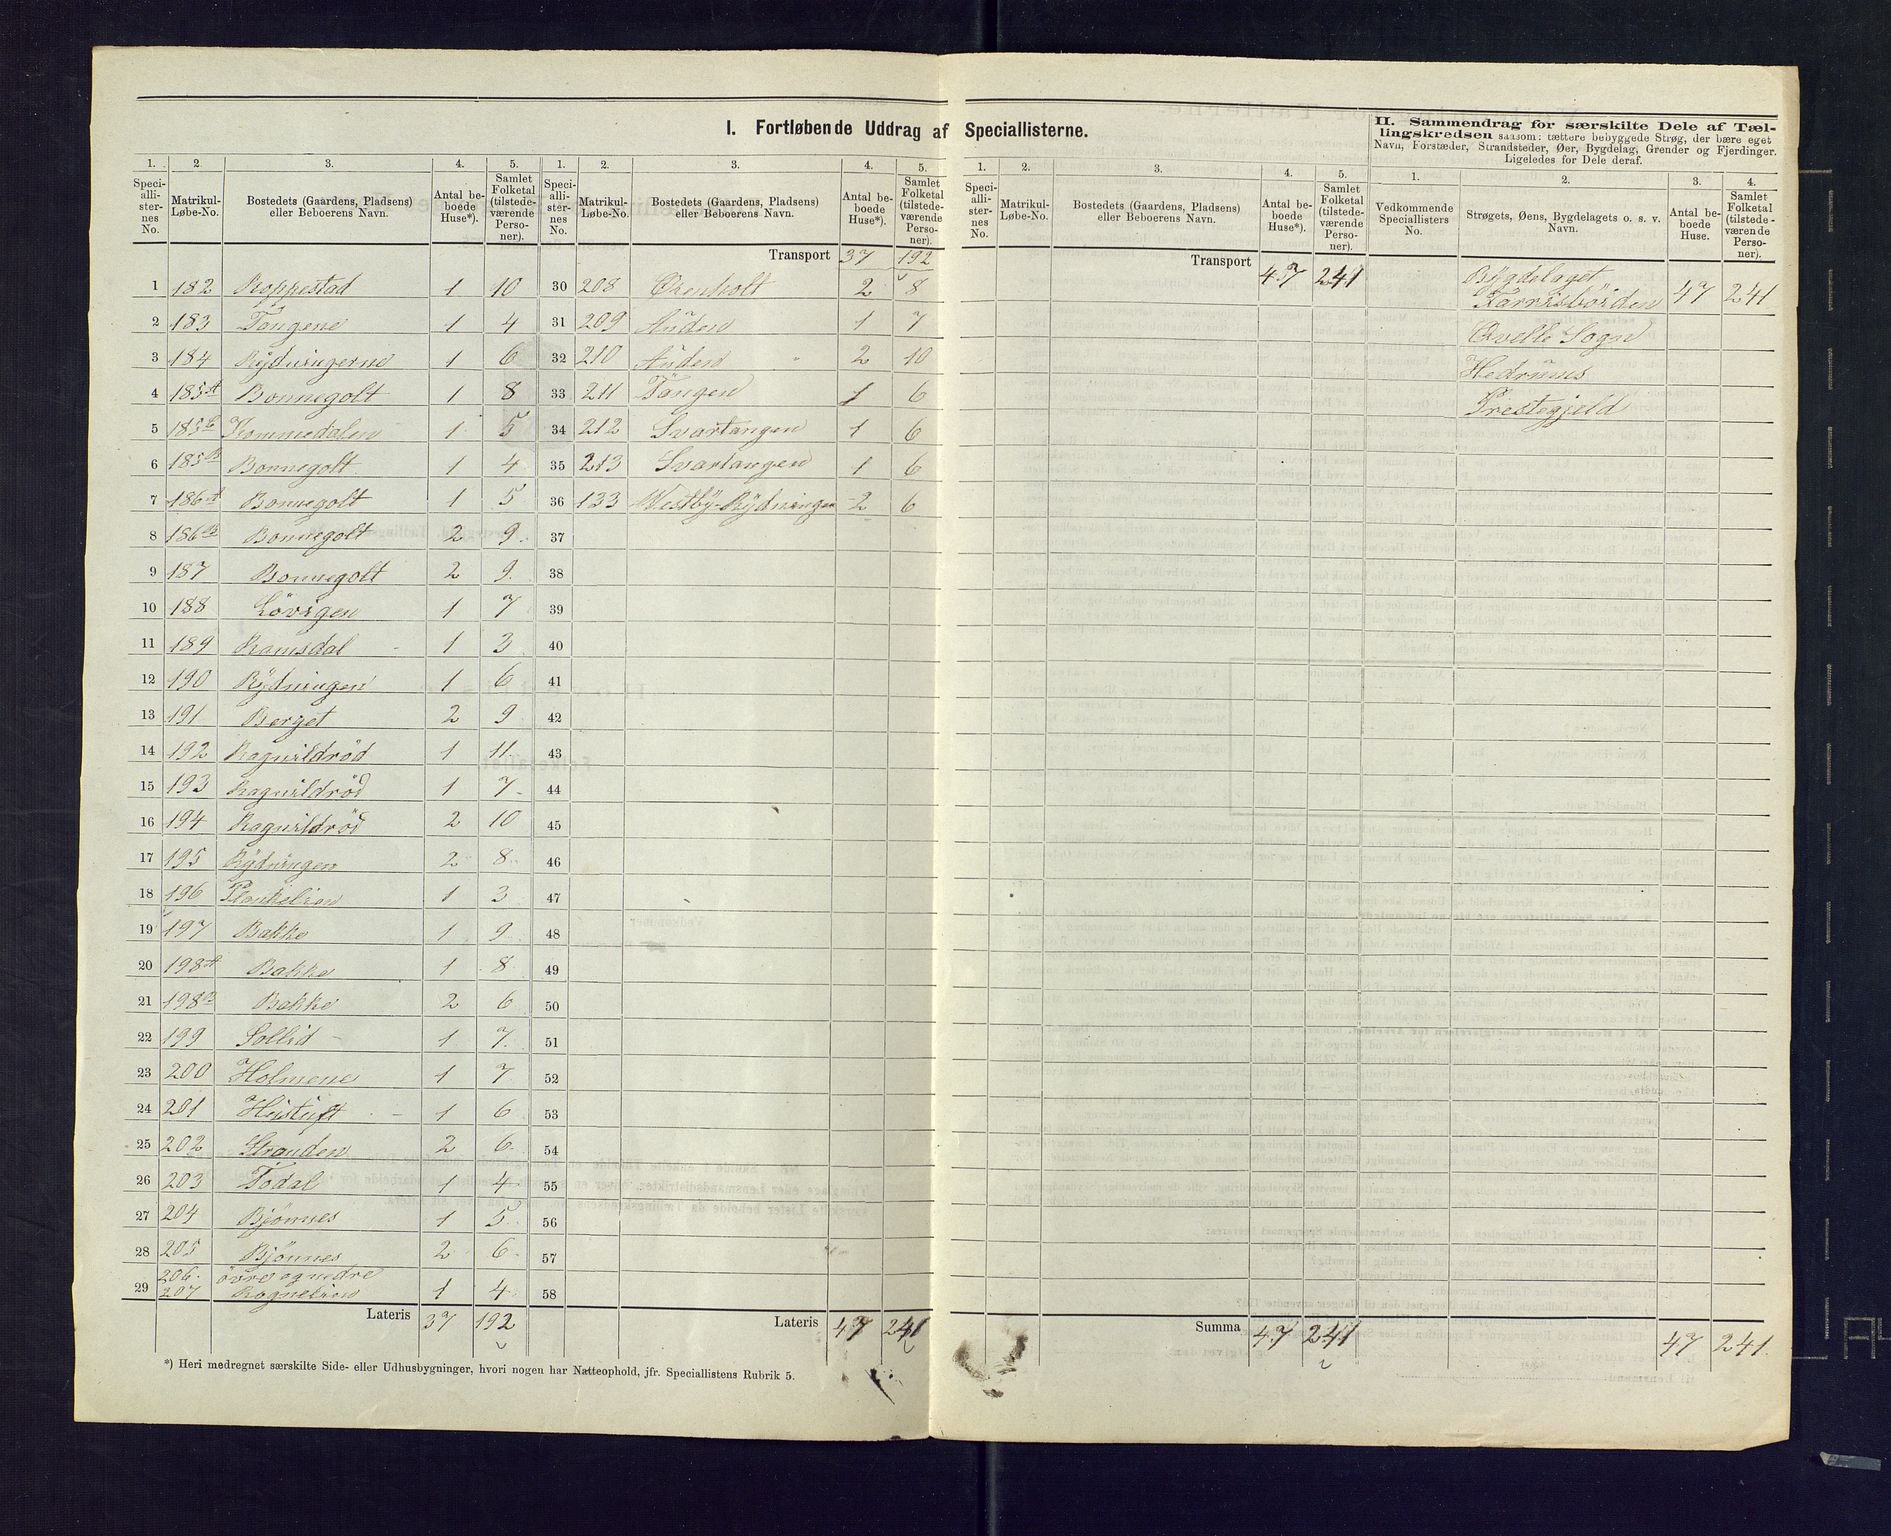 I. Fortløbende Uddrag af Speciallisterne.
II. Sammendrag for særskilte Dele af Tæl-
lingskredsen saasom: tættere bebyggede Strøg, der bære eget
Navn, Forstæder, Strandsteder, Øer, Bygdelag, Grender og Fjerdinger.
Ligeledes for Dele deraf.
1. 2. 3. 4. 5. 1. 2. 3. 4. 5. 1. 2. 3. 4. 5. 1. 2. 3. 4.
Speci-alli-ster-nes No. Matrikul-Løbe-No. Bostedets (Gaardens, Pladsens) eller Beboerens Navn. Antal be-boede Huse*). Samlet Folketal (tilstede-værende Perso-ner).
Speci-alli-ster-nes No. Matrikul-Løbe-No. Bostedets (Gaardens, Pladsens) eller Beboerens Navn. Antal be-boede Huse*). Samlet Folketal (tilstede-værende Perso-ner).
Speci-alli-ster-nes No. Matrikul-Løbe-No. Bostedets (Gaardens, Pladsens) eller Beboerens Navn. Antal be-boede Huse*). Samlet Folketal (tilstede-værende Perso-ner).
Vedkommende Speciallisters No. Strøgets, Øens, Bygdelagets o. s. v. Navn. Antal be-boede Huse. Samlet Folketal (tilstede-værende Perso-ner).
1 182 Roppestad 1 10
2 183 Tangene 1 4
3 184 Rydningerne 1 6
4 185A Bonnegolt 1 8
5 185 Kommedalen 1 5
6 185B Bonnegolt 1 4
7 186A Bonnegolt 1 5
8 186B Bonnegolt 2 9
9 187 Bonnegolt 2 9
10 188 Lövigen 1 7
11 189 Ramsdal 1 3
12 190 Rydningen 1 6
13 191 Berget 2 9
14 192 Ragnildröd 1 11
15 193 Ragnildröd 1 7
16 194 Ragnildröd 2 10
17 195 Rydningen 2 8
18 196 1 3
19 197 Bakke 1 9
20 198A Bakke 1 8
21 198B Bakke 2 6
22 199 Sollid 1 7
23 200 Holmene 1 7
24 201 Heistuft 1 6
25 202 Stranden 2 6
26 203 Todal 1 4
27 204 Bjönnes 1 5
28 205 Bjönnes 2 6
29 206. 207 övre og nedre 1 4
Lateris 37 192
Transport 37 192
30 208 Ökenholt 2 8
31 209 Anden 1 7
32 210 Anden 2 10
33 211 Tangen 1 6
34 212 Svartangen 1 6
35 213 Svartangen 1 6
36 133 Westby-Rydningen 2 6
37
38
39
40
41
42
43
44
45
46
47
48
49
50
51
52
53
54
55
56
57
58
Lateris 47 241
Transport 47 241
Summa 47 241
Bygdelaget
47 241
Qvelle Sogn
Hedrums
Prestegjeld
47 241.
*) Heri medregnet særskilte Side- eller Udhusbygninger, hvori nogen har Natteophold, jfr. Speciallistens Rubrik 5.